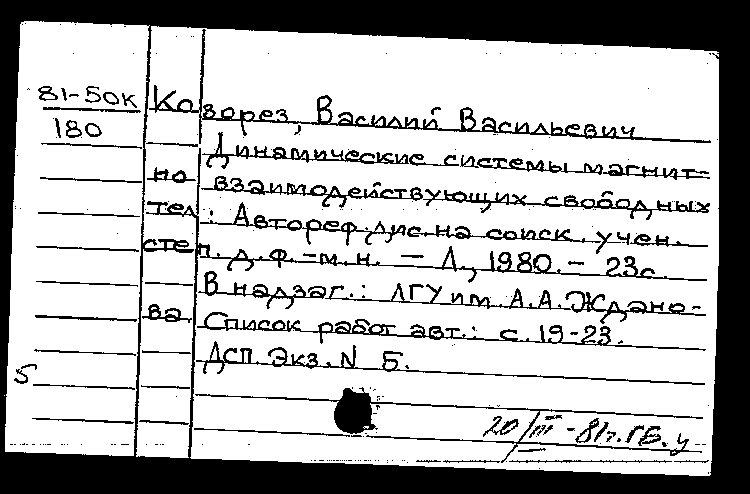 81-50к
180
Козорез, Василий Васильевич
Динамические системы магнит-
но взаимодействующих свободных
тел: Автореф. дис. на соиск. учен.
степ. д. ф.-м. н. — Л., 1980. — 23с.
В надзаг.: ЛГУ им. А. А. Ждано-
ва. Список работ авт.: с. 19-23.
ДСП. Экз. N 5.
5
20/III-81г. ГБ. у